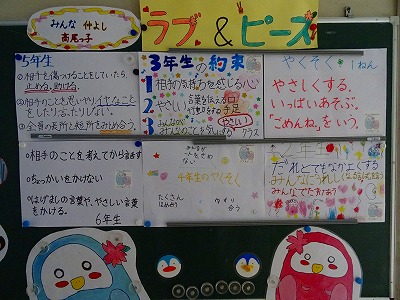 みんな 仲よし
高尾っ子
ラブ & ピース
5年生
①相手を傷つけることをしていたら
止める、助ける。
②相手のことを思いやり、イヤなことを
したり、言ったりしない。
③全員の長所と短所をみとめ合う。
3年生の約束
1 相手の気持ちを感じる心
2 やさしい
3 みんなが
クラス
やくそく 1ねん
やさしくする。
いっぱいあそぶ。
「ごめんね」をいう。
・相手のことを考えてから話す
・ちょっかいをかけない
・はげましの言葉や、やさしい言葉
をかける。
6年生
4年生のやくそく
たくさん
ほめ合う
ゆずり
合う
2年生
だれとでもなかよくする
みんなにうれしい
みんなでたすけあう